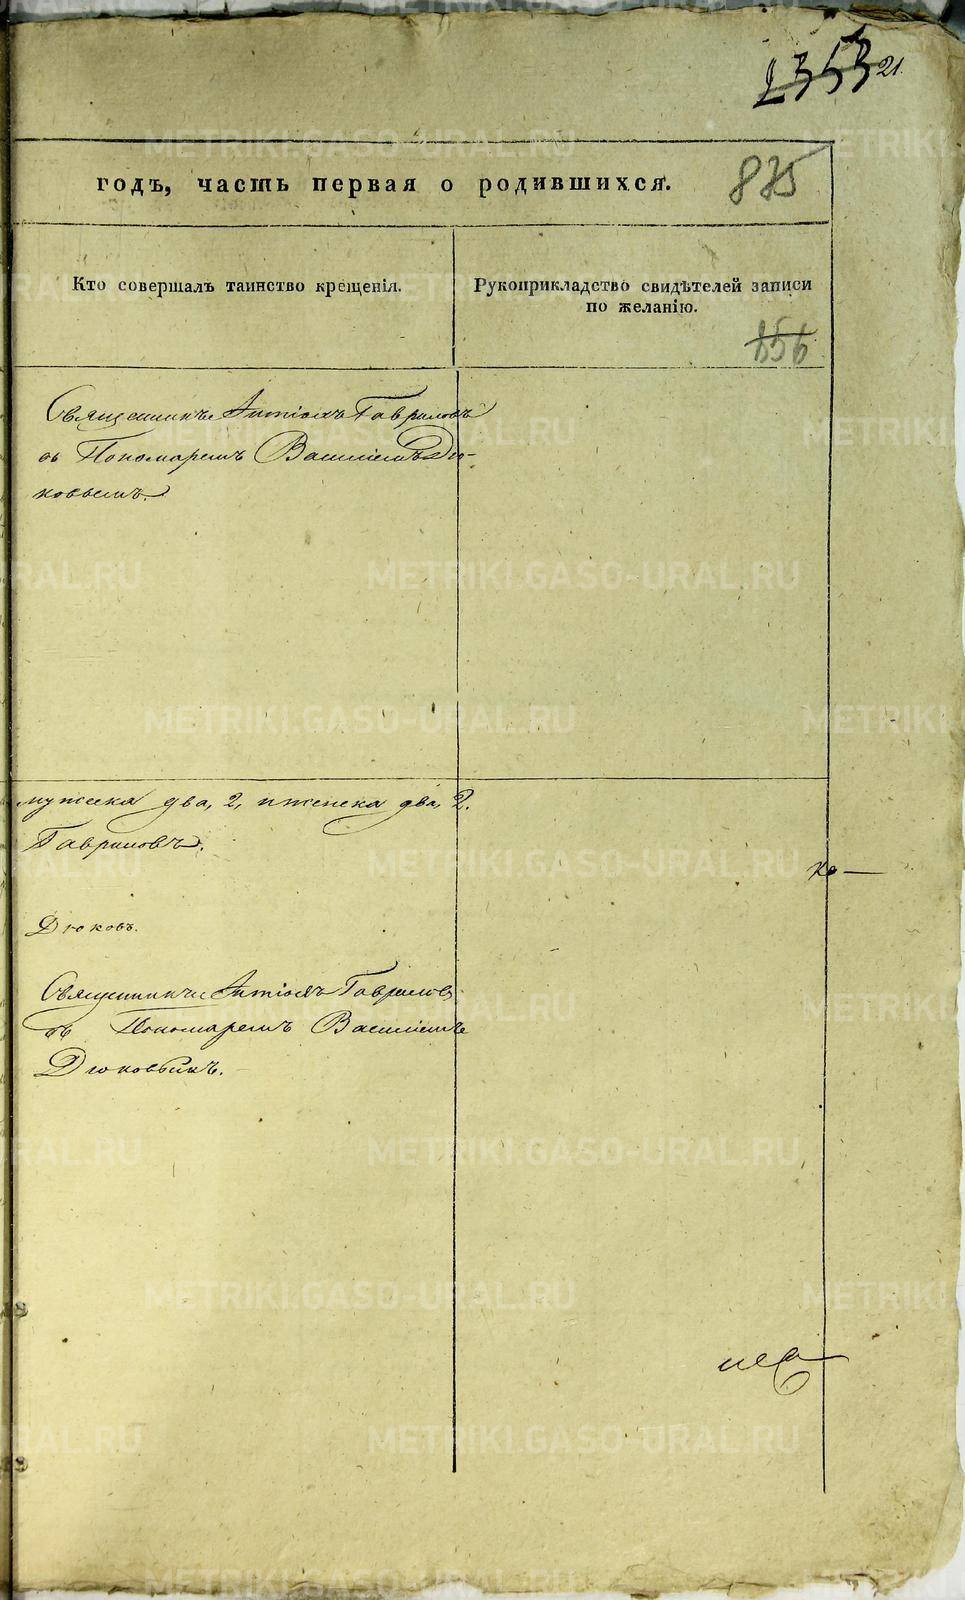 2353 21
годъ, часть первая о родившихся.
875
Кто совершалъ таинство крещенія.
Рукоприкладство свидѣтелей записи
по желанію.
856
Священникъ Гавриловъ
съ Пономаремъ Василіемъ Дю-
ковымъ.
мужеска два, 2, и женска два, 2.
Гавриловъ.
ко
Дюковъ.
Священникъ Гавриловъ
съ Пономаремъ Василіемъ
Дюковымъ.
METRIKI.GASO-URAL.RU